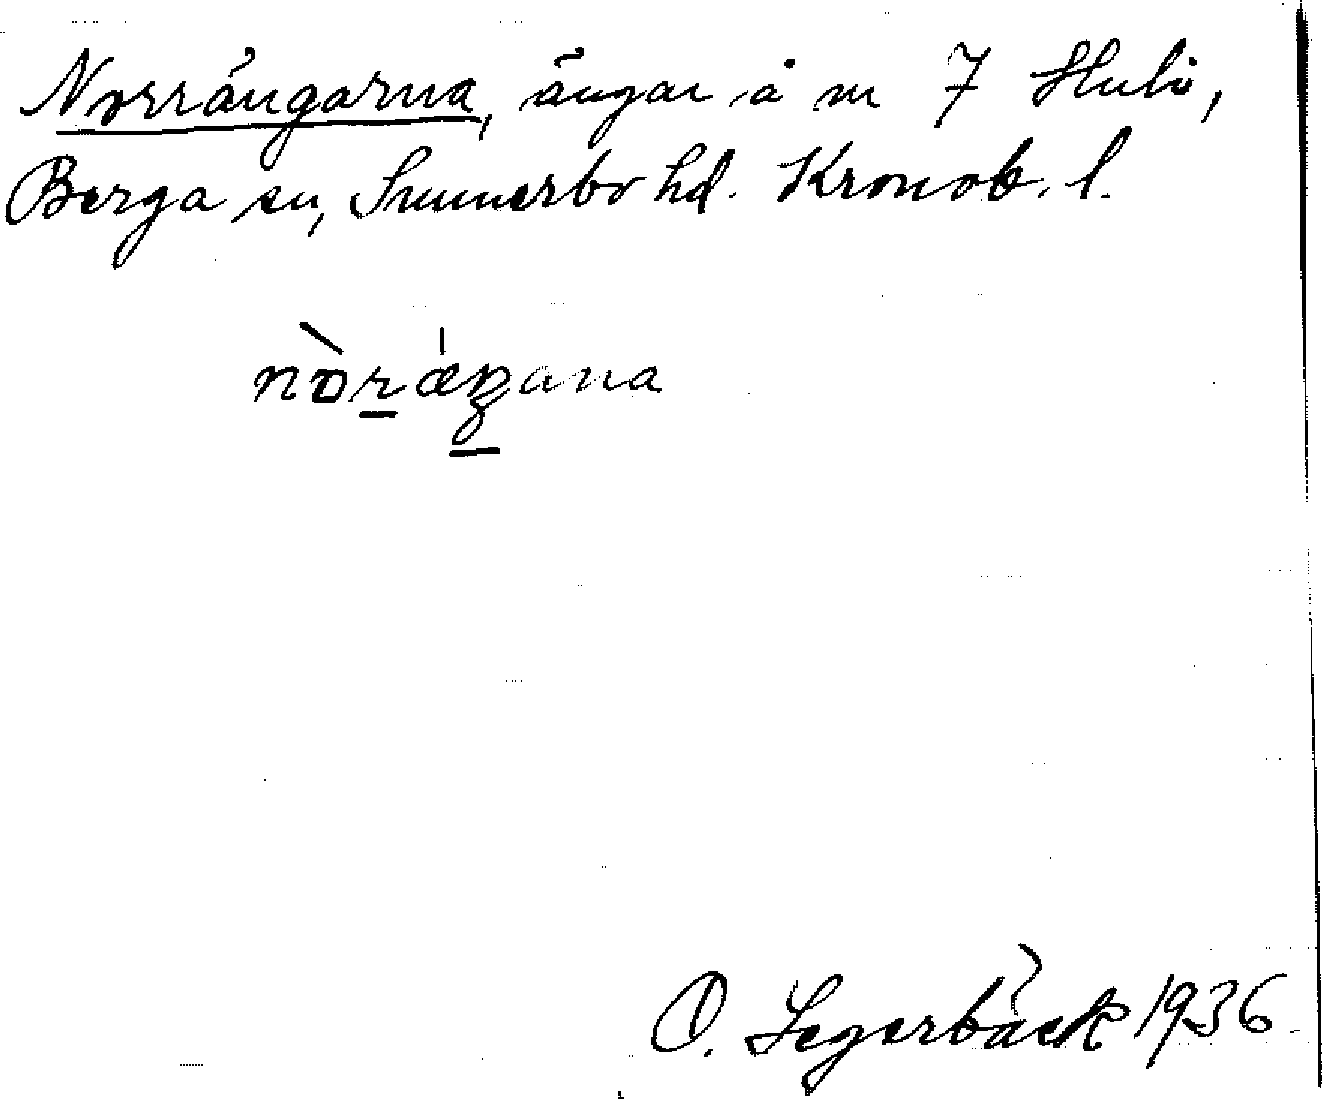 Norrängarna, ängar å nr 7 Hulö,
Berga sn, Sunnerbo hd. Kronob. l.
nòræŋana
O. Segerbäck 1936